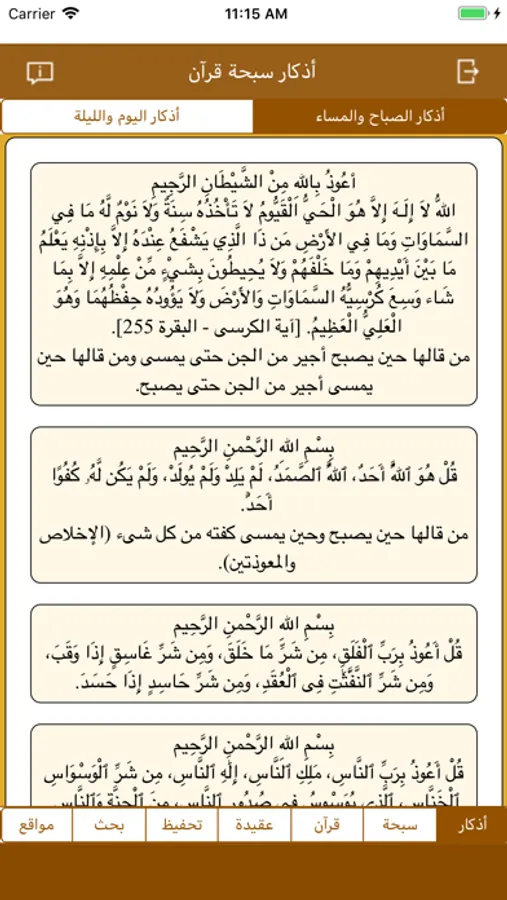 Carrier 11:15 AM
أذكار سبحة قرآن
أذكار الصباح والمساء
أذكار اليوم والليلة
أعُوذُ بِاللهِ مِنْ الشَّيْطَانِ الرَّجِيمِ
اللهُ لاَ إِلَـهَ إِلاَّ هُوَ الْحَيُّ الْقَيُّومُ لاَ تَأْخُذُهُ سِنَةٌ وَلاَ نَوْمٌ لَّهُ مَا فِي
السَّمَاوَاتِ وَمَا فِي الأَرْضِ مَن ذَا الَّذِي يَشْفَعُ عِنْدَهُ إِلاَّ بِإِذْنِهِ يَعْلَمُ
مَا بَيْنَ أَيْدِيهِمْ وَمَا خَلْفَهُمْ وَلاَ يُحِيطُونَ بِشَيْءٍ مِّنْ عِلْمِهِ إِلاَّ بِمَا
شَاء وَسِعَ كُرْسِيُّهُ السَّمَاوَاتِ وَالأَرْضَ وَلاَ يَؤُودُهُ حِفْظُهُمَا وَهُوَ
الْعَلِيُّ الْعَظِيمُ. [آية الكرسى - البقرة 255].
من قالها حين يصبح أجير من الجن حتى يمسى ومن قالها حين
يمسى أجير من الجن حتى يصبح.
بِسْمِ الله الرَّحْمنِ الرَّحِيم
قُلْ هُوَ ٱللَّهُ أَحَدٌ، ٱللَّهُ ٱلصَّمَدُ، لَمْ يَلِدْ وَلَمْ يُولَدْ، وَلَمْ يَكُن لَّهُۥ كُفُوًا
أَحَدٌۢ.
من قالها حين يصبح وحين يمسى كفته من كل شىء (الإخلاص
والمعوذتين).
بِسْمِ الله الرَّحْمنِ الرَّحِيم
قُلْ أَعُوذُ بِرَبِّ ٱلْفَلَقِ، مِن شَرِّ مَا خَلَقَ، وَمِن شَرِّ غَاسِقٍ إِذَا وَقَبَ،
وَمِن شَرِّ ٱلنَّفَّٰثَٰتِ فِى ٱلْعُقَدِ، وَمِن شَرِّ حَاسِدٍ إِذَا حَسَدَ.
بِسْمِ الله الرَّحْمنِ الرَّحِيم
قُلْ أَعُوذُ بِرَبِّ ٱلنَّاسِ، مَلِكِ ٱلنَّاسِ، إِلَٰهِ ٱلنَّاسِ، مِن شَرِّ ٱلْوَسْوَاسِ
ٱلْخَنَّاسِ، ٱلَّذِى يُوَسْوِسُ فِى صُدُورِ ٱلنَّاسِ، مِنَ ٱلْجِنَّةِ وَٱلنَّاسِ
أذكار
سبحة
قرآن
عقيدة
تحفيظ
بحث
مواقع